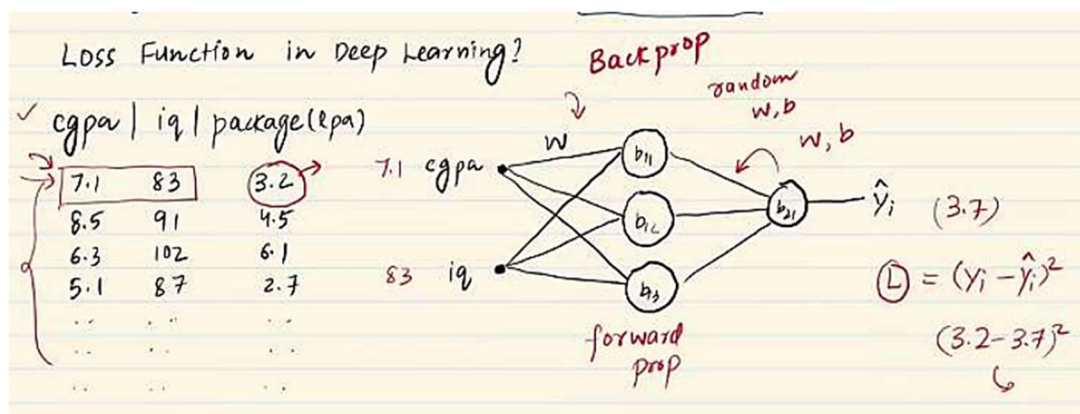 Loss Function in Deep Learning?
Backprop
random
w,b
w, b
cgpa | iq | package(lpa)
7.1 83 3.2
8.5 91 4.5
6.3 102 6.1
5.1 87 2.7
7.1 cgpa
83 iq
w
b11
b12
b13
b21
ŷi (3.7)
L = (yi - ŷi)²
(3.2-3.7)²
forward
prop